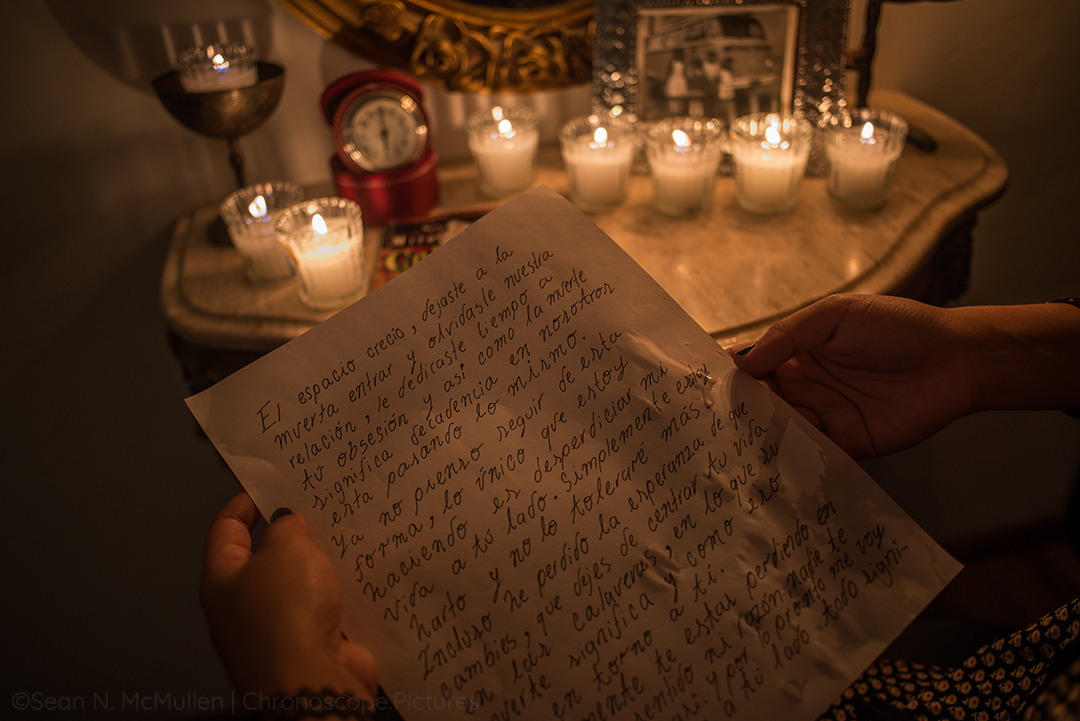 El espacio crecio, dejaste a la
muerta entrar y olvidaste nuestra
relación, le dedicaste tiempo a
tú obsesión y así como la muerte
significa decadencia en nosotros
esta pasando lo mismo.
Ya no pienso seguir de esta
forma, lo único que estoy
haciendo es desperdiciar mi
vida a tú lado. Simplemente estoy
harto y no lo tolerare más.
Incluso he perdido la esperanza de que
cambies, que dejes de centrar tu vida
en las calaveras, en lo que su
muerte significa y como eso
en torno a ti.
mente te estas perdiendo en
sentido ni razón nadie te
asi. y por lo pronto me voy
a tú lado todo signi-
©Sean N. McMullen | Chronoscope.Pictures